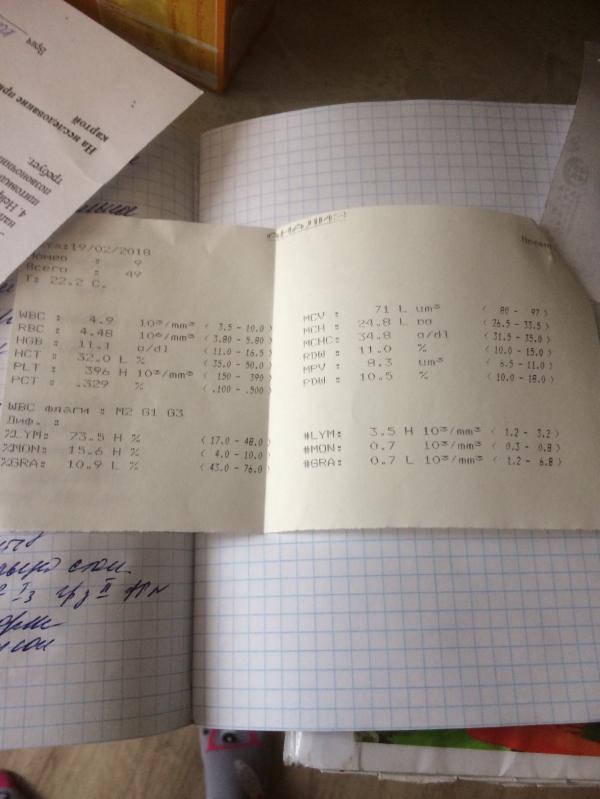 Врач
На исследование при
картой
требует.
позвоночни
щитовидн
4. Ней
АНАЛИЗ
та:19/02/2018
Номер : 9
Всего : 49
T: 22.2 C.
WBC : 4.9 10³/mm³ ( 3.5 - 10.0 )
RBC : 4.48 10⁶/mm³ ( 3.80 - 5.80 )
HGB : 11.1 g/dl ( 11.0 - 16.5 )
HCT : 32.0 L % ( 35.0 - 50.0 )
PLT : 396 H 10³/mm³ ( 150 - 390 )
PCT : .329 % ( .100 - .500 )
WBC флаги : M2 G1 G3
Диф. :
%LYM: 73.5 H % ( 17.0 - 48.0 )
%MON: 15.6 H % ( 4.0 - 10.0 )
%GRA: 10.9 L % ( 43.0 - 76.0 )
MCV : 71 L um³ ( 80 - 97 )
MCH : 24.8 L pg ( 26.5 - 33.5 )
MCHC: 34.8 g/dl ( 31.5 - 35.0 )
RDW : 11.0 % ( 10.0 - 15.0 )
MPV : 8.3 um³ ( 6.5 - 11.0 )
PDW : 10.5 % ( 10.0 - 18.0 )
#LYM: 3.5 H 10³/mm³ ( 1.2 - 3.2 )
#MON: 0.7 10³/mm³ ( 0.3 - 0.8 )
#GRA: 0.7 L 10³/mm³ ( 1.2 - 6.8 )